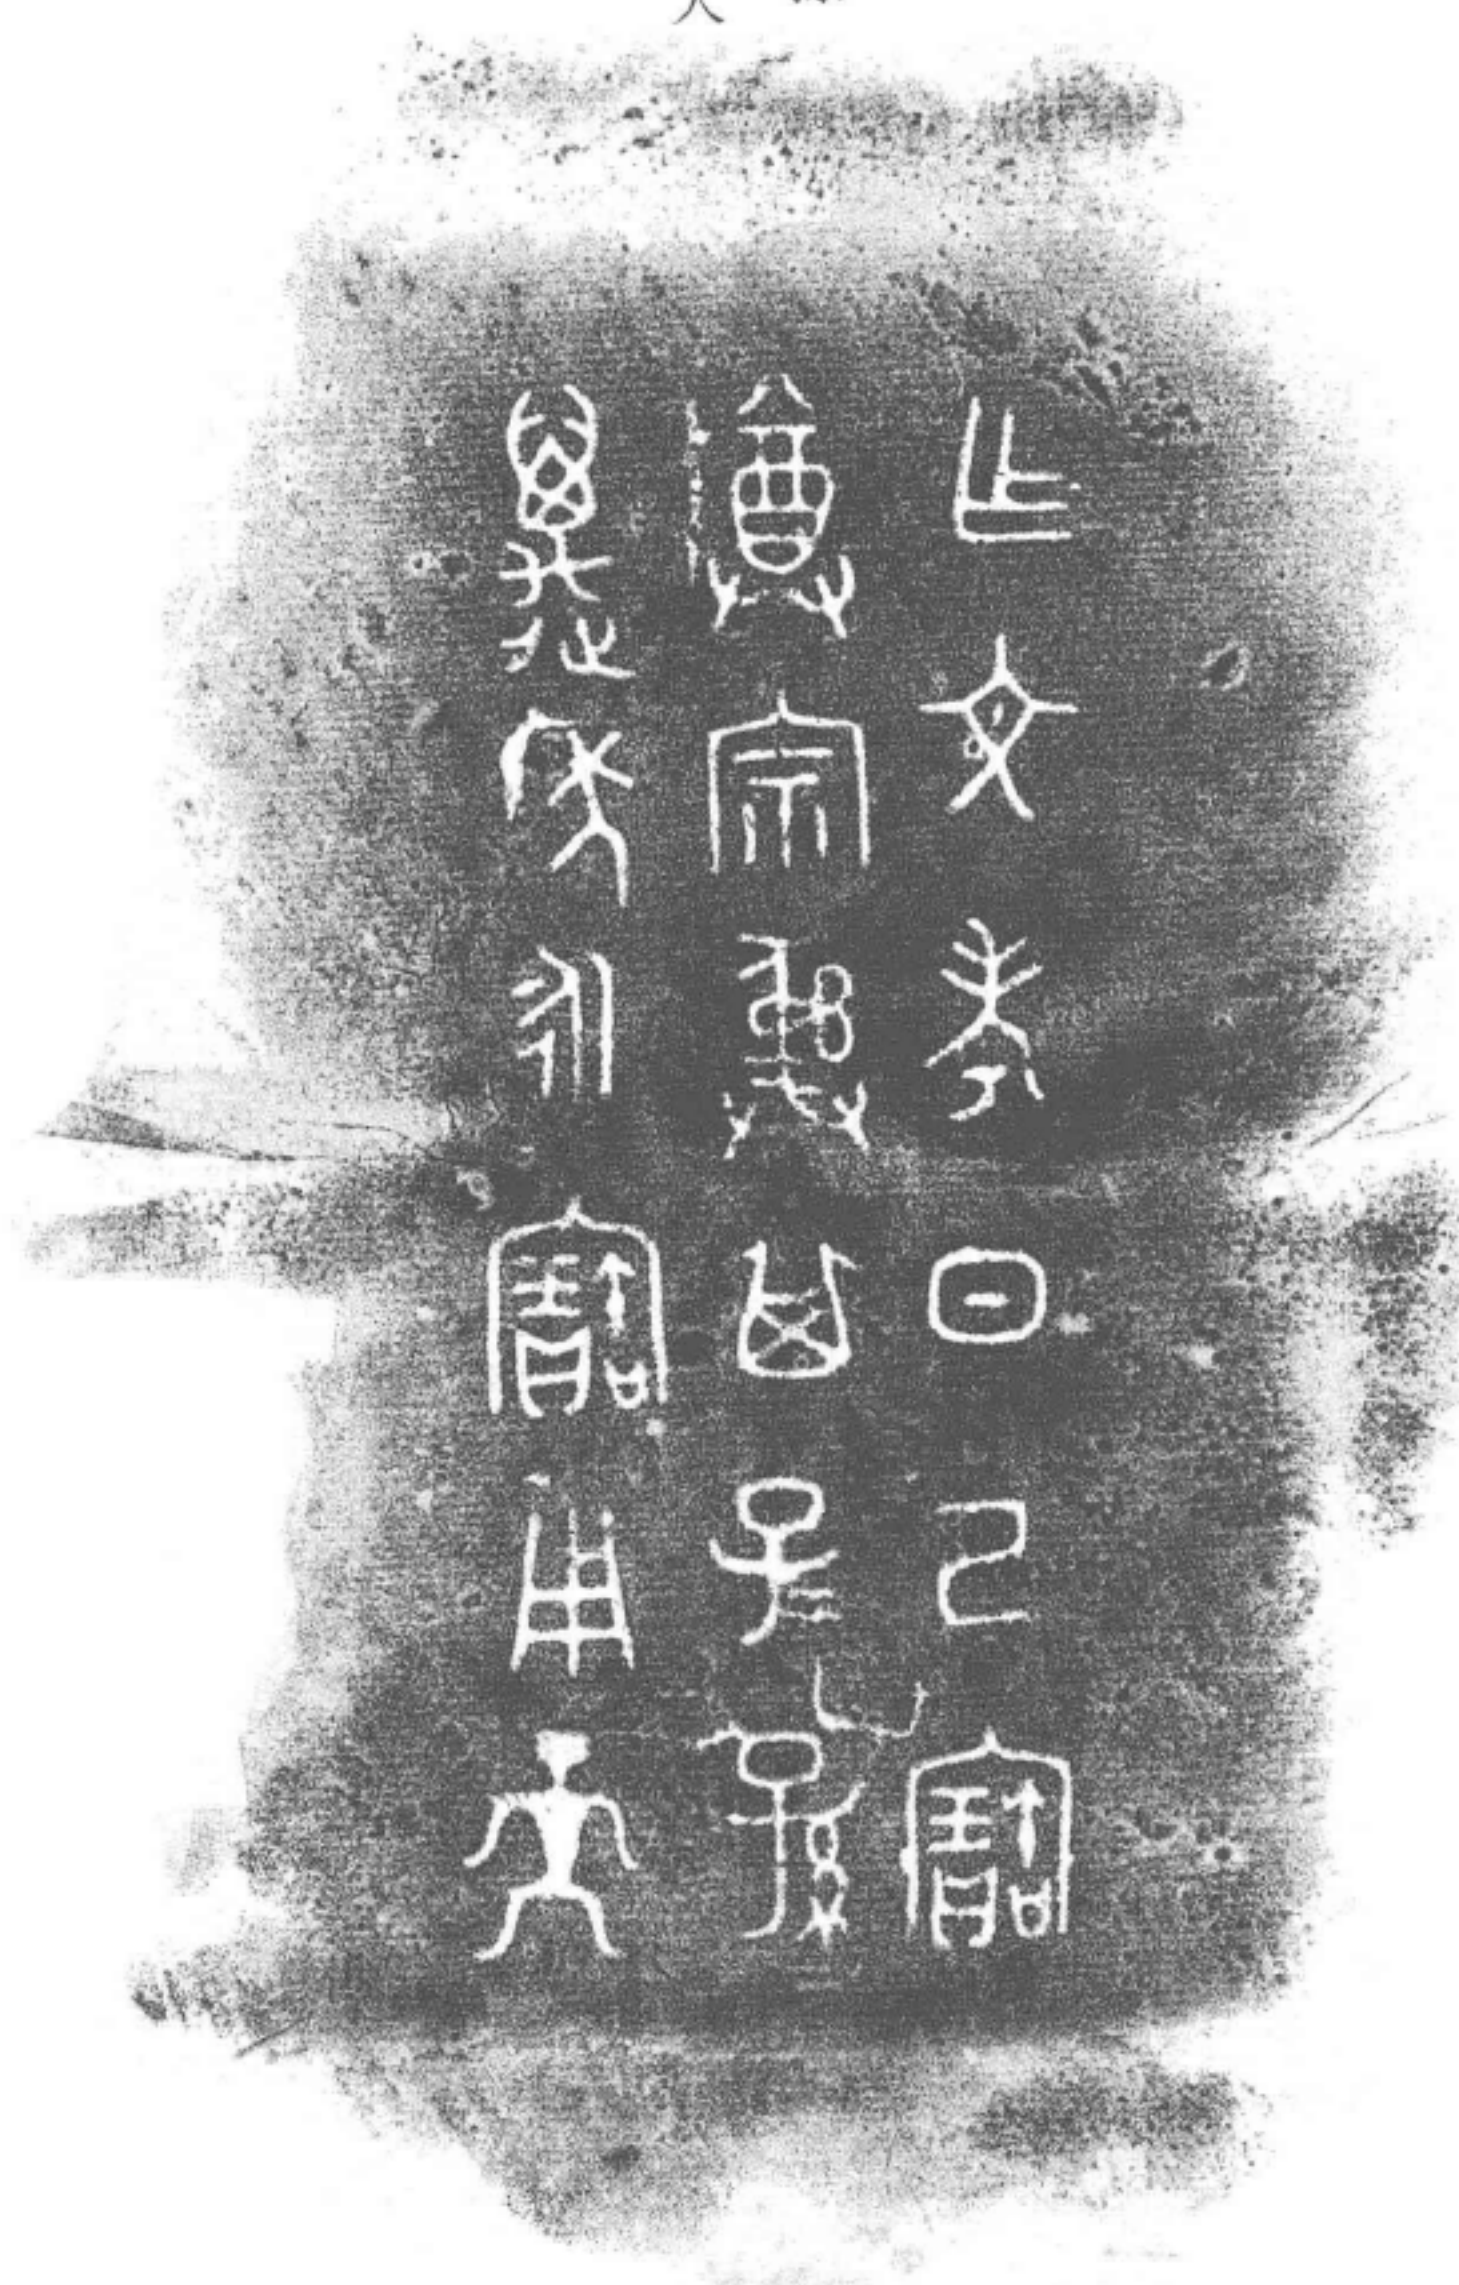 乍文考日己寶
尊宗彝其子＝孫＝
萬年永寶用天